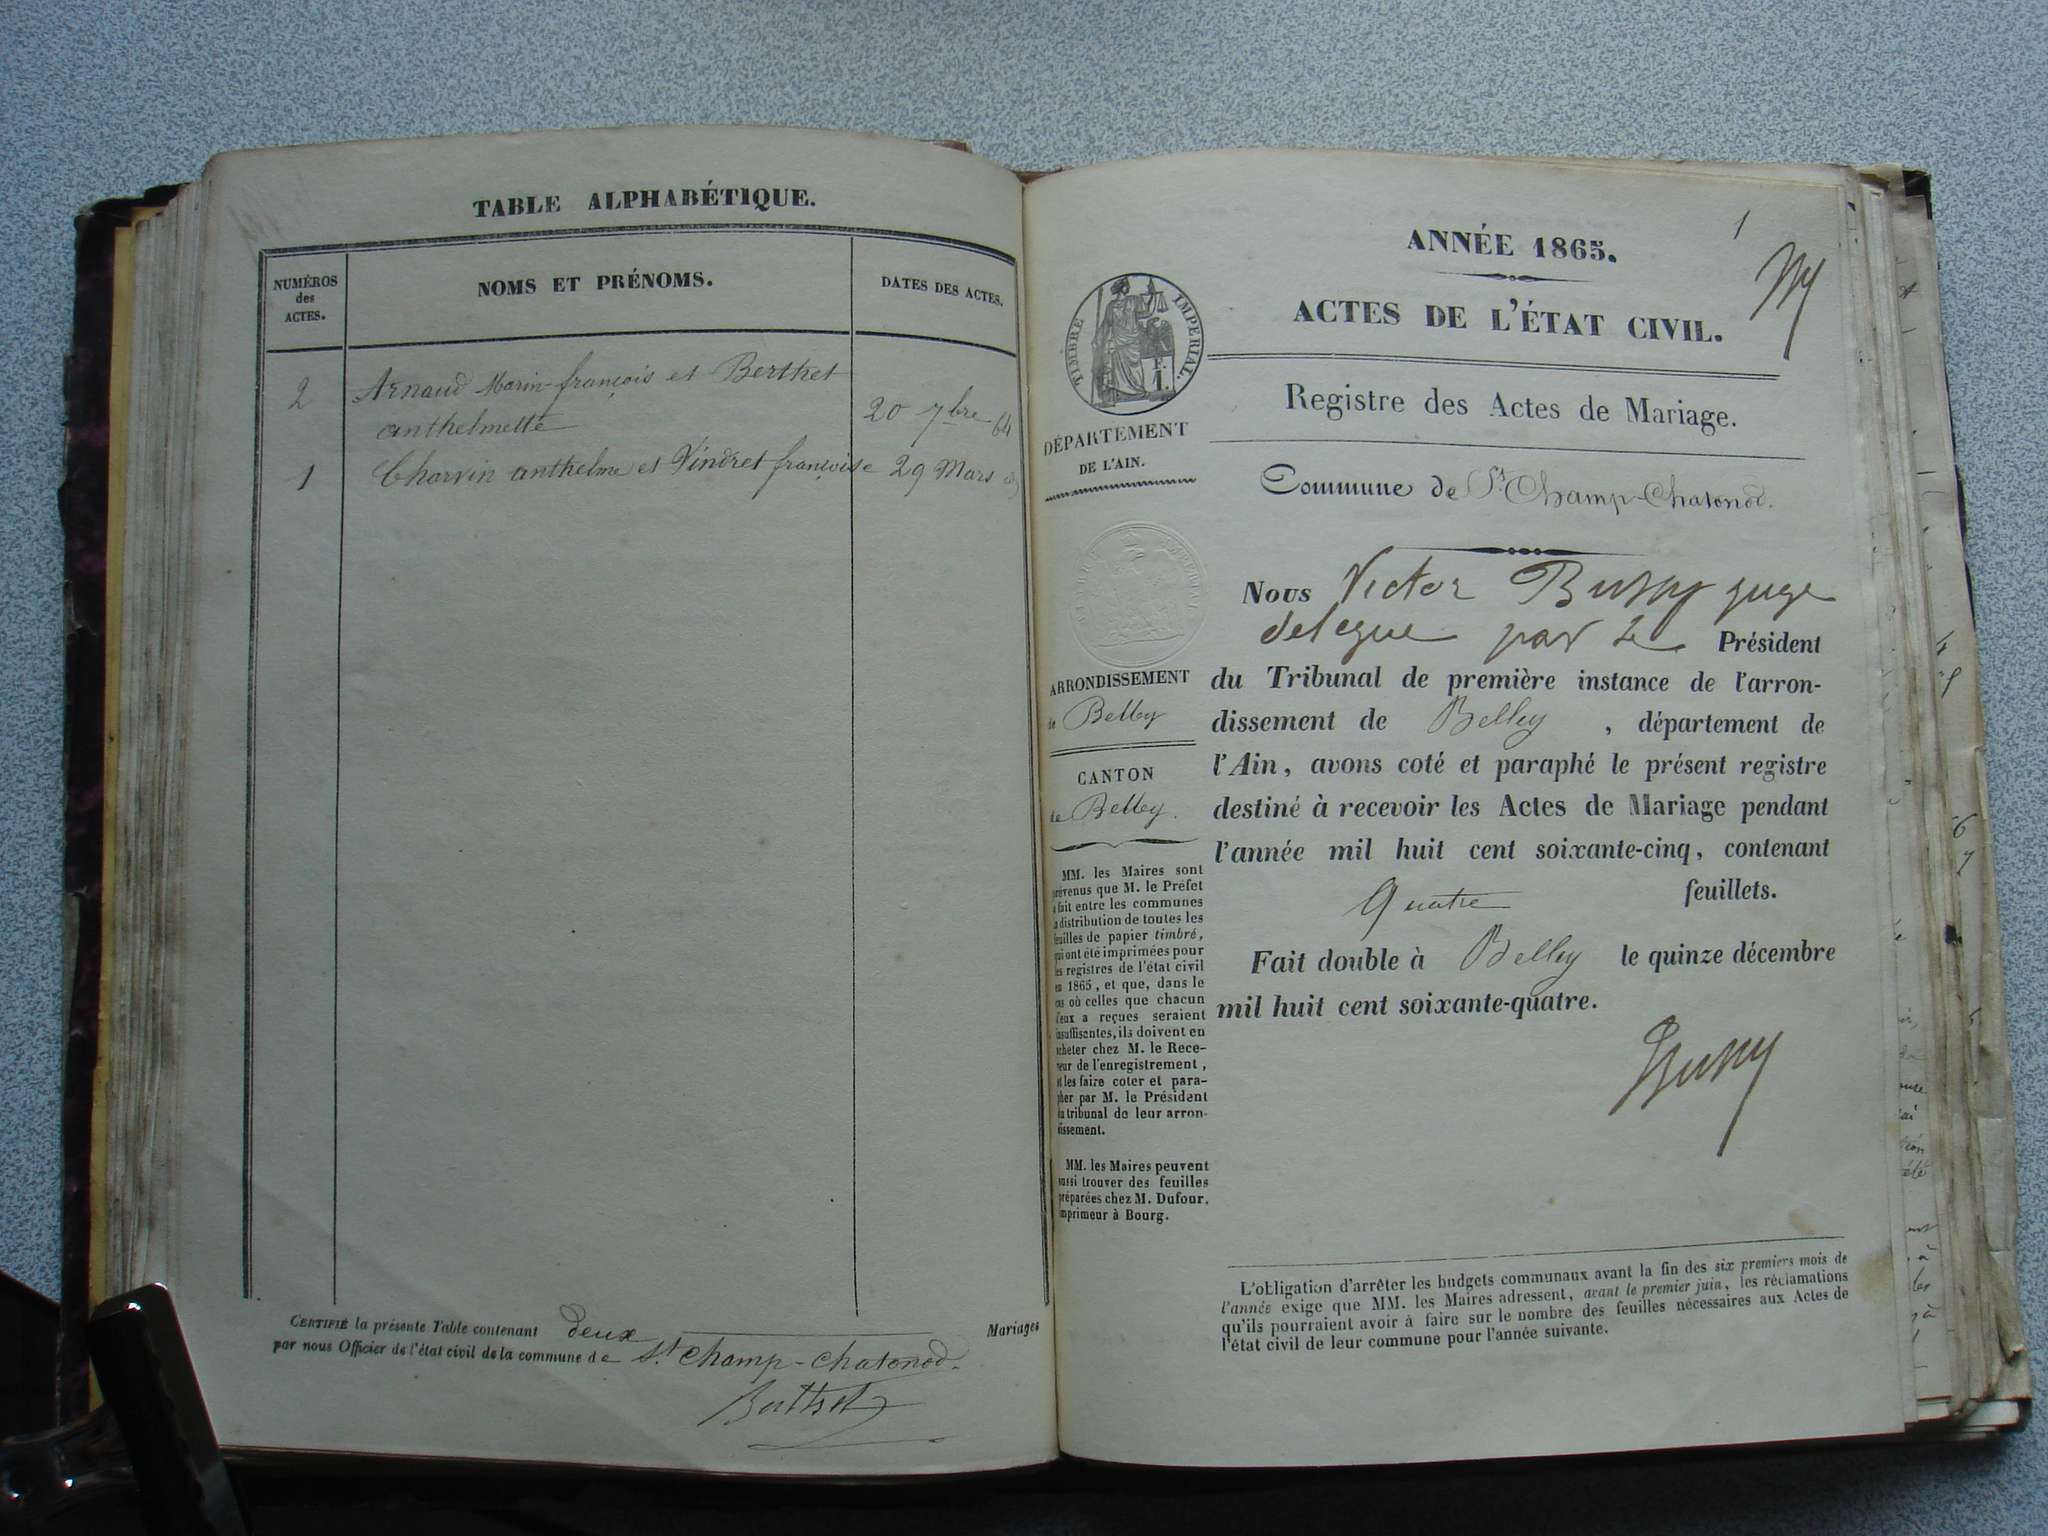 TABLE ALPHABÉTIQUE.
NUMÉROS
des
ACTES.
NOMS ET PRÉNOMS.
DATES DES ACTES.
2 Arnaud Marin-françois et Berthet
anthelmette 20 7bre 64
1 Charvin anthelme et Vindret françoise 29 Mars
CERTIFIÉ la présente Table contenant deux Mariages
par nous Officier de l'état civil de la commune de St. Champ-Chatonod.
Berthet
1
ANNÉE 1865.
ACTES DE L'ÉTAT CIVIL.
Registre des Actes de Mariage.
Commune de St. Champ-Chatonod.
TIMBRE IMPERIAL.
DÉPARTEMENT
DE L'AIN.
ARRONDISSEMENT
de Belley
CANTON
de Belley.
MM. les Maires sont
prévenus que M. le Préfet
a fait entre les communes
la distribution de toutes les
feuilles de papier timbré,
qui ont été imprimées pour
les registres de l'état civil
en 1865, et que, dans le
cas où celles que chacun
d'eux a reçues seraient
insuffisantes, ils doivent en
acheter chez M. le Rece-
veur de l'enregistrement,
et les faire coter et para-
pher par M. le Président
du tribunal de leur arron-
dissement.
MM. les Maires peuvent
aussi trouver des feuilles
préparées chez M. Dufour,
imprimeur à Bourg.
Nous Victor Bussy juge
delegue par Le Président
du Tribunal de première instance de l'arron-
dissement de Belley, département de
l'Ain, avons coté et paraphé le présent registre
destiné à recevoir les Actes de Mariage pendant
l'année mil huit cent soixante-cinq, contenant
Quatre feuillets.
Fait double à Belley le quinze décembre
mil huit cent soixante-quatre.
Bussy
L'obligation d'arrêter les budgets communaux avant la fin des six premiers mois de
l'année exige que MM. les Maires adressent, avant le premier juin, les réclamations
qu'ils pourraient avoir à faire sur le nombre des feuilles nécessaires aux Actes de
l'état civil de leur commune pour l'année suivante.